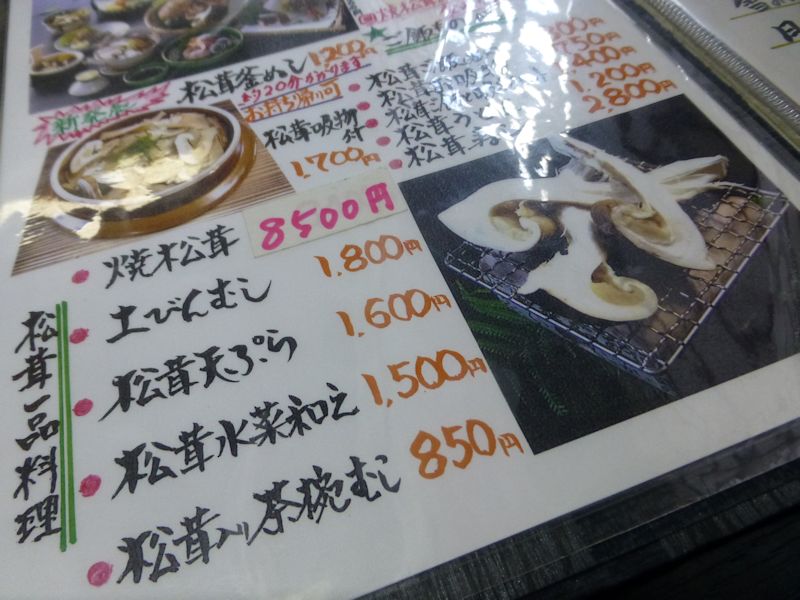 松茸釜めし 1,200円
約20分かかります
お持ち帰り可
新発売
松茸吸物付
1,700円
松茸
松茸
松茸
松茸
松茸
750円
400円
1,200円
2,800円
松茸一品料理
焼松茸 8500円
土びんむし 1,800円
松茸天ぷら 1,600円
松茸水菜和え 1,500円
松茸入り茶碗むし 850円